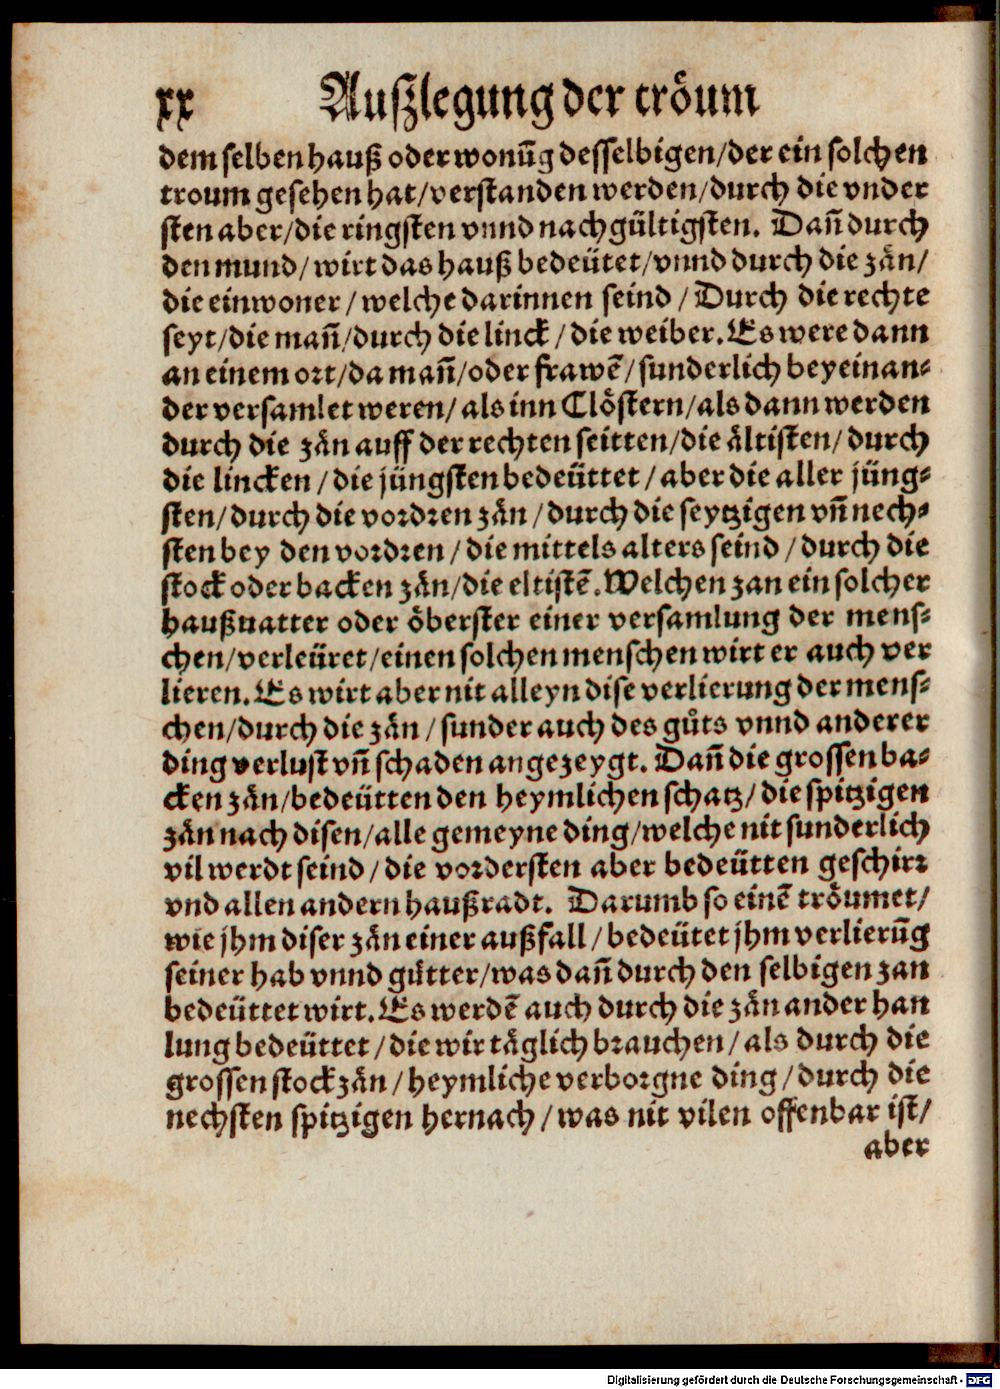 xx Außzlegung der tröum
dem selben hauß oder wonūg desselbigen/der ein solchen
troum gesehen hat/verstanden werden/durch die vnder
sten aber/die ringsten vnnd nachgültigsten. Dañ durch
den mund/wirt das hauß bedeütet/vnnd durch die zän/
die einwoner/welche darinnen seind/Durch die rechte
seyt/die mañ/durch die linck/die weiber. Es were dann
an einem ort/da mañ/oder frawē/sunderlich bey einan-
der versamlet weren/als inn Clöstern/als dann werden
durch die zän auff der rechten seitten/die ältisten/durch
die lincken/die jüngsten bedeüttet/aber die aller jüng-
sten/durch die vordren zän/durch die seytzigen vñ nech-
sten bey den vordren/die mittels alters seind/durch die
stock oder backen zän/die eltistē. Welchen zan ein solcher
haußuatter oder öberster einer versamlung der mens-
chen/verleüret/einen solchen menschen wirt er auch ver
lieren. Es wirt aber nit alleyn dise verlierung der mens-
chen/durch die zän/sunder auch des gůts vnnd anderer
ding verlust vñ schaden angezeygt. Dañ die grossen ba-
cken zän/bedeütten den heymlichen schatz/die spitzigen
zän nach disen/alle gemeyne ding/welche nit sunderlich
vil werdt seind/die vordersten aber bedeütten geschirr
vnd allen andern haußradt. Darumb so einē tröumet/
wie jhm diser zän einer außfall/bedeütet jhm verlierūg
seiner hab vnnd gütter/was dañ durch den selbigen zan
bedeüttet wirt. Es werdē auch durch die zän ander han
lung bedeüttet/die wir täglich brauchen/als durch die
grossen stockzän/heymliche verborgne ding/durch die
nechsten spitzigen hernach/was nit vilen offenbar ist/
aber
Digitalisierung gefördert durch die Deutsche Forschungsgemeinschaft - DFG